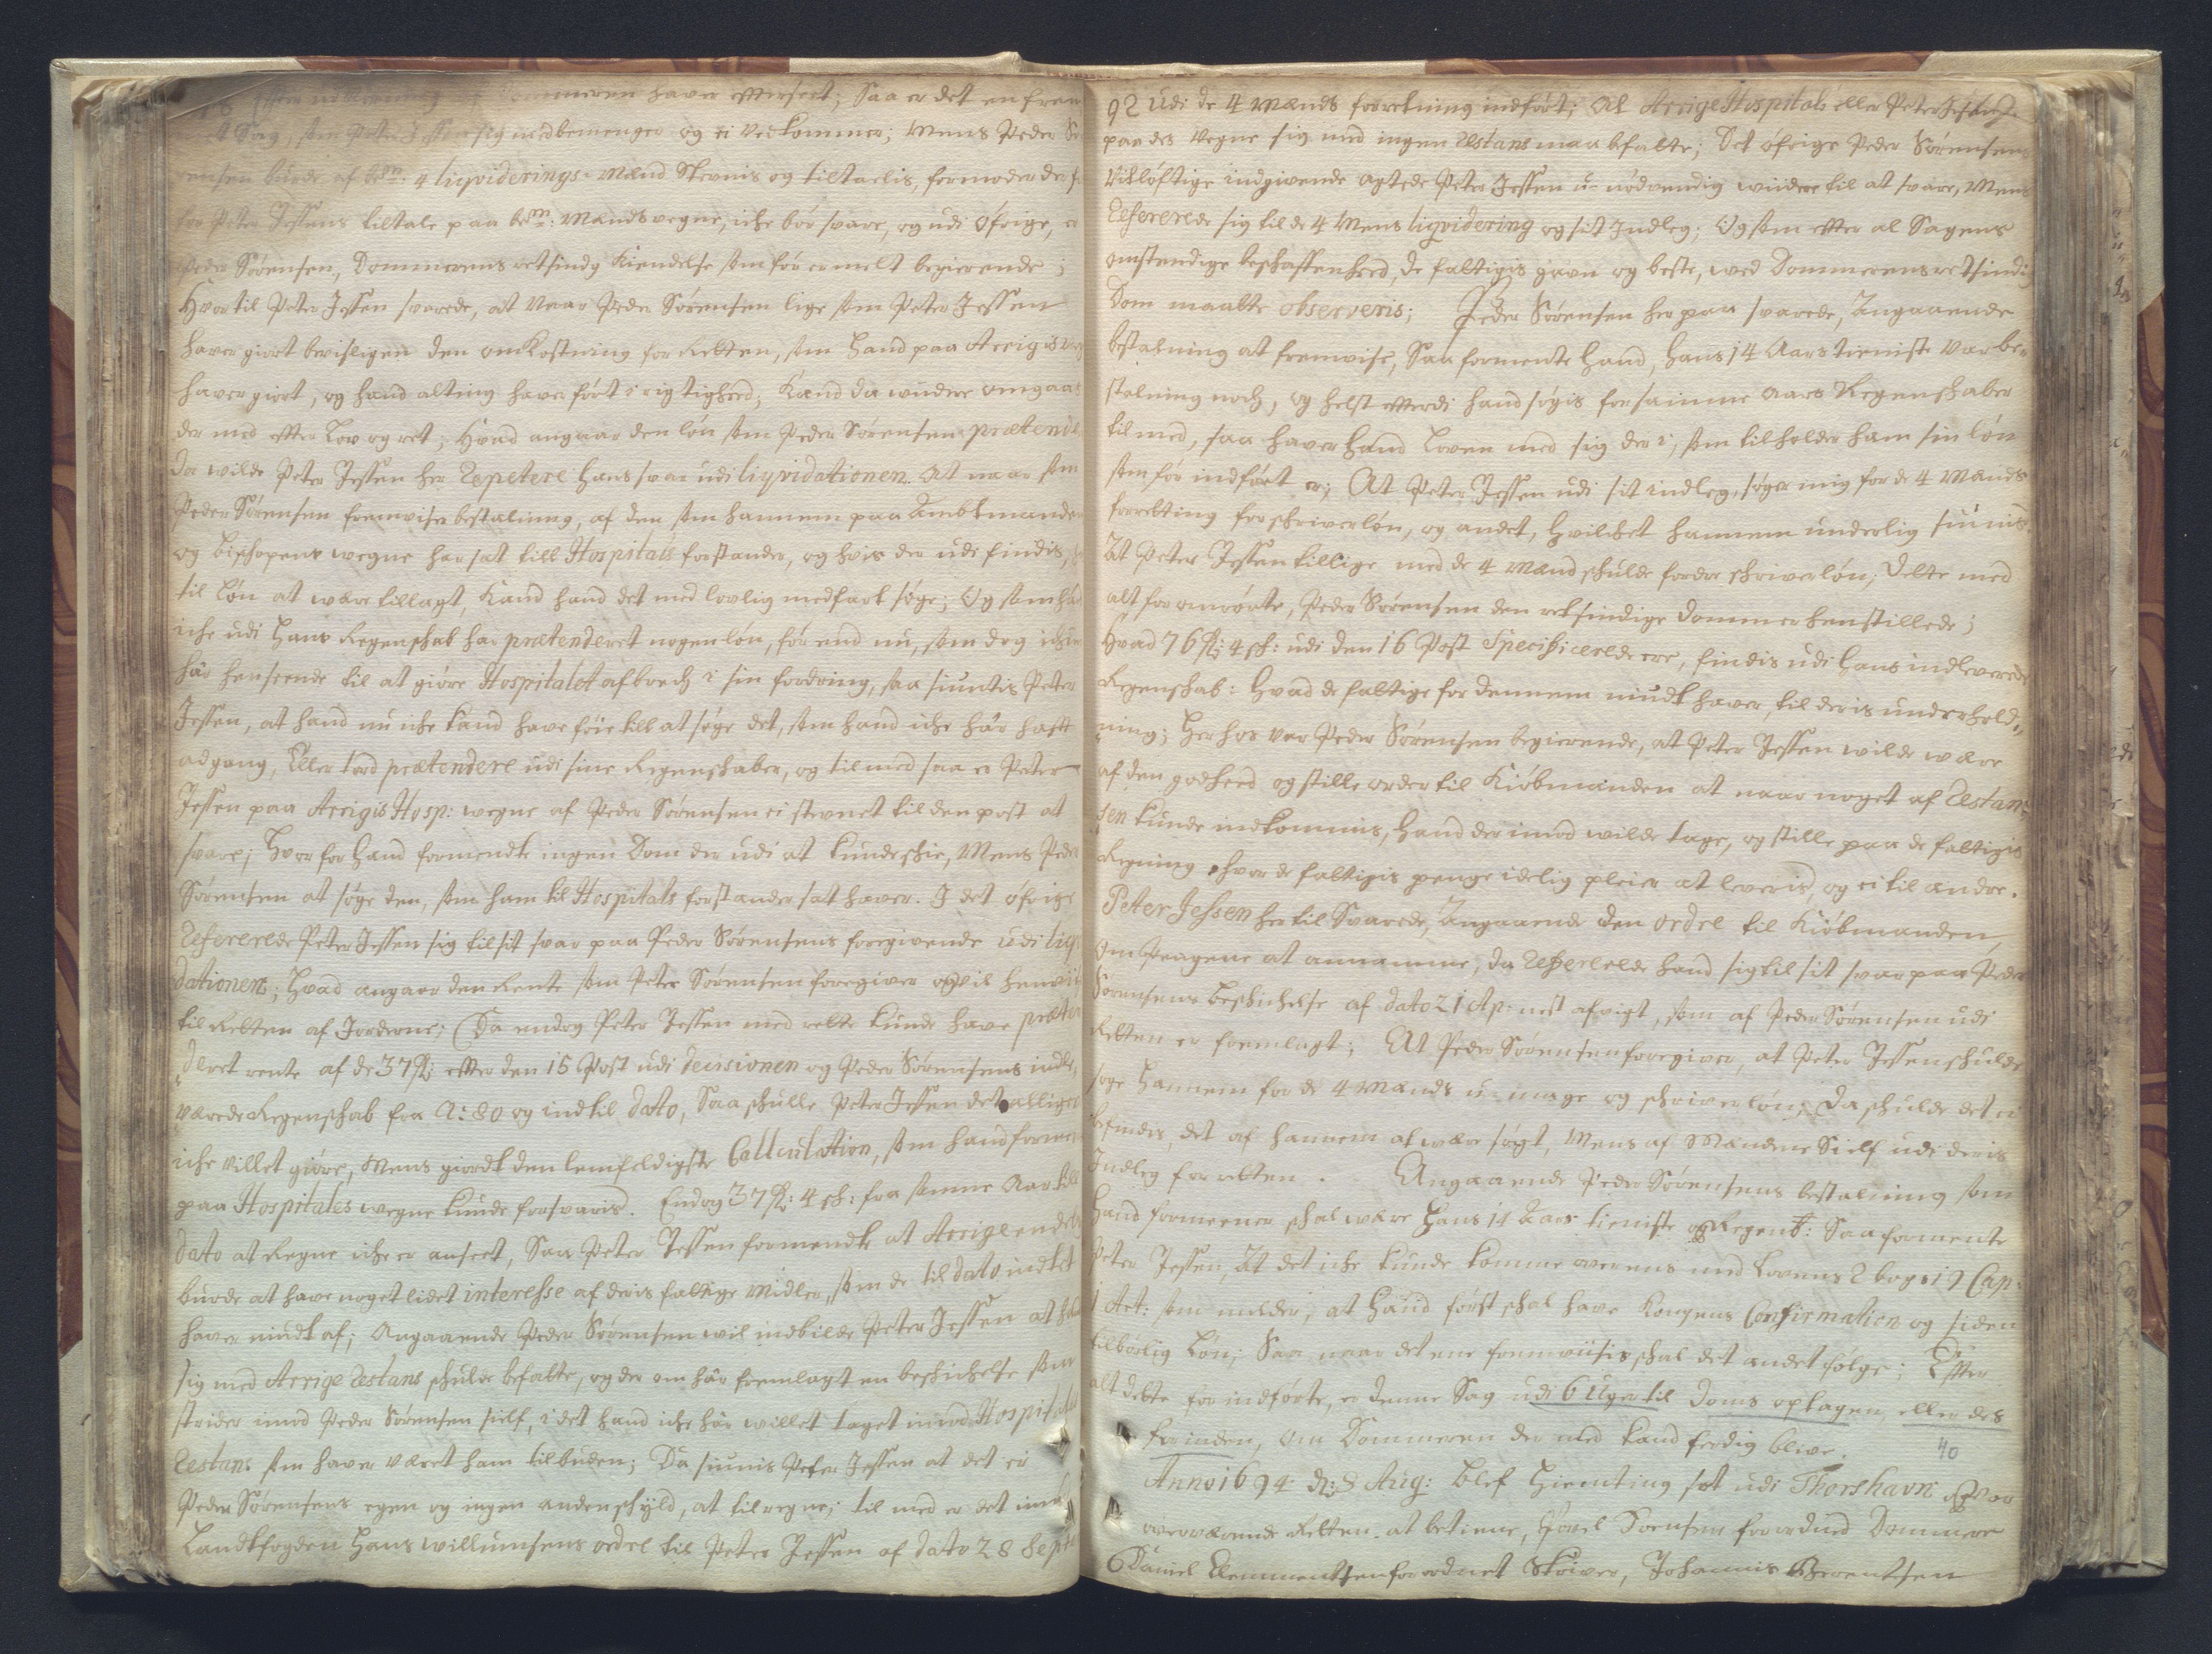 haver efterseet; Saa er det en frem
Sag, som Peter Jessen sig med bemenger og ei ved kommer; Mens Peder Sø
rensen burde af bemte: 4 liqviderings-Mænd Stevnis og tiltaelis, formoder der
for Peter Jessens tiltale paa bemte: Mænds vegne, iche bør svare, og udi øfrige, er
Peder Sørensen, Dommerens retsindig Kiendelse som før ermelt begierende;
Hvortil Peter Jessen svarede, at naar Peder Sørensen lige som Peter Jessen
haver giort bevisligen den omkostning for Retten, som hand paa Arrigis
haver giort, og hand alting haver ført i rigtighed, Kand da widere omgaas
der med effter Lov og ret; Hvad angaar den løn som Peder Sørensen prætend
da wilde Peter Jessen her Repetere hans svar udi liqvidationen. At naar som
Peder Sørensen fremviser bestalning, af den som hannem paa Ambtmanden
og Bischopens wegne har sat till Hospitals forstander, og hvis der udi findis,
til løn at være tillagt, Kand hand det med lovlig medfart søge; Og som hand
iche udi hans Regenschab har prætenderet nogen løn, før end nu, som dog iche
har henseende til at giøre Hospitalet afbrech i sin fordring, saa siuntis Peter
Jessen, at hand nu iche kand have føie till at søge det, som hand iche har hafft
adgang, Eller tord prætendere udi sine Regenschaber, og til med saa er Peter
Jessen paa Arrigis Hosp: wegne af Peder Sørensen ei stevnet til den post at
svare; Hvor for hand formendte ingen Dom der udi at kunde schie, Mens Peder
Sørensen at søge den, som ham til Hospitals forstander sat haver. I det øfrige
Refererede Peter Jessen sig til sit svar paa Peder Sørensens foregivende udi liqvi
dationen; Hvad angaar den Rente som Peter Sørensen foregiver og vil henvise
til Retten af Jorderne; (Da endog Peter Jessen med rette kunde have præten
deret rente af de 37 Rd: effter den 15 Post udi decisionen og Peder Sørensens indle
verede Regenschab fra A: 80 og indtil dato, Saa schulle Peter Jessen det alligevel
iche villet giøre, Mens giordt den lemfeldigste Callculation, som hand forme
paa Hospitales wegne kunde forsvaris. Endog 37 Rd: 4 sch: fra samme Aar till
dato at Regne iche er anseet, Saa Peter Jessen formendte at Arrige endelig
burde at have noget lidet interesse af deris fattige Midler, som de til dato indtet
haver nindt af; Angaaende Peder Sørensen wil indbilde Peter Jessen at ha
sig med Arrige Restans schulde befatte, og der om har fremlagt en beschichelse som
strider imod Peder Sørensen sielf, i det hand iche har willet taget imod Hospitals
Restans som haver været ham tilbuden; Da siunis Peter Jessen at det er
Peder Sørensens egen og ingen anden schyld, at tilregne; til med er det imod
Landtfogden Hans Willumsens ordre til Peter Jessen af dato 28 Sept
92 udi de 4 Mænds forretning indført; At Arrige Hospitals eller Peter Jessen
paa des vegne sig med ingen Restans maa befatte; Det øfrige Peder Sørensens
vitløftige indgivende agtede Peter Jessen u-nødvendig wiidere til at svare, Mens
Refererede sig til de 4 Mens liqvidering og sit Indleg; Og som effter al Sagens
omstendige beschaffenhed, de fattigis gavn og beste, wed Dommerens retsindig
Dom maatte observeris; Peder Sørensen her paa svarede, Angaaende
bestalning at fremvise, Saa formente hand, hans 14 Aars tieniste var be-
stalning noch, og helst efterdi hand søgis for samme aars Regenschaber
til med, saa haver hand Loven med sig der i, som tilholder ham sin løn
som før indført er; At Peter Jessen udi sit indleg, søger mig for de 4 Mænds
forretting for schriverløn, og andet, hvilchet hannem underlig siunis
At Peter Jessen tillige med de 4 Mænd schulde fordre schriverløn; Dette med
alt foromrørte, Peder Sørensen den retsindige Dommer henstillede;
Hvad 76 Rd: 4 sch: udi den 16 Post Specificerede ere, findis udi hans indleverede
Regenschab: hvad de fattige for dennem niudt haver, til deris underhold-
ning; Her hos var Peder Sørensen begierende, at Peter Jessen wilde være
af den godhed og stille order til Kiøbmanden at naar noget af Restan-
sen kunde indkommis, hand derimod wilde tage, og stille paa de fattigis
Regning, hvor de fattigis penge idelig pleier at leveris, og ei til andre.
Peter Jessen her til Svarede, Angaaende den ordre til Kiøbmanden,
Om pengene at annamme, da Refererede hand sig til sit svar paa Peder
Sørensens beschichelse af dato 21 Ap: nest afvigt, som af Peder Sørensen udi
Retten er fremlagt; At Peder Sørensen foregiver, at Peter Jessen schulde
søge hannem for de 4 Mænds u-mage og schriverløn, Da schulde det ei
befindis, det af hannem at være søgt, Mens af Mændene Sielf udi deris
Indleg for retten. Angaaende Peder Sørensens bestalning som
hand formeener schal være hans 14 Aars tieniste og Regensk: Saa formente
Peter Jessen, At det iche kunde komme overens med Lovens 2 bogs 19 Cap:
1 Art: som melder, at hand først schal have Kongens Confirmation og siden
tilbørlig løn; Saa naar det ene fremviisis, schal det andet følge; Effter
alt dette for indførte, er denne Sag udi 6 Uger til doms optagen, eller des
forinden, om Dommeren der med kand ferdig blive.
40
Anno 1694 d: 8 Aug: blef Hiemting sat udi Thorshavn og var
overværende Retten at betiene, Povel Soensen forordnet Dommere
Daniel Clemmentsen forordnet Skriver, Johannis Berentsen